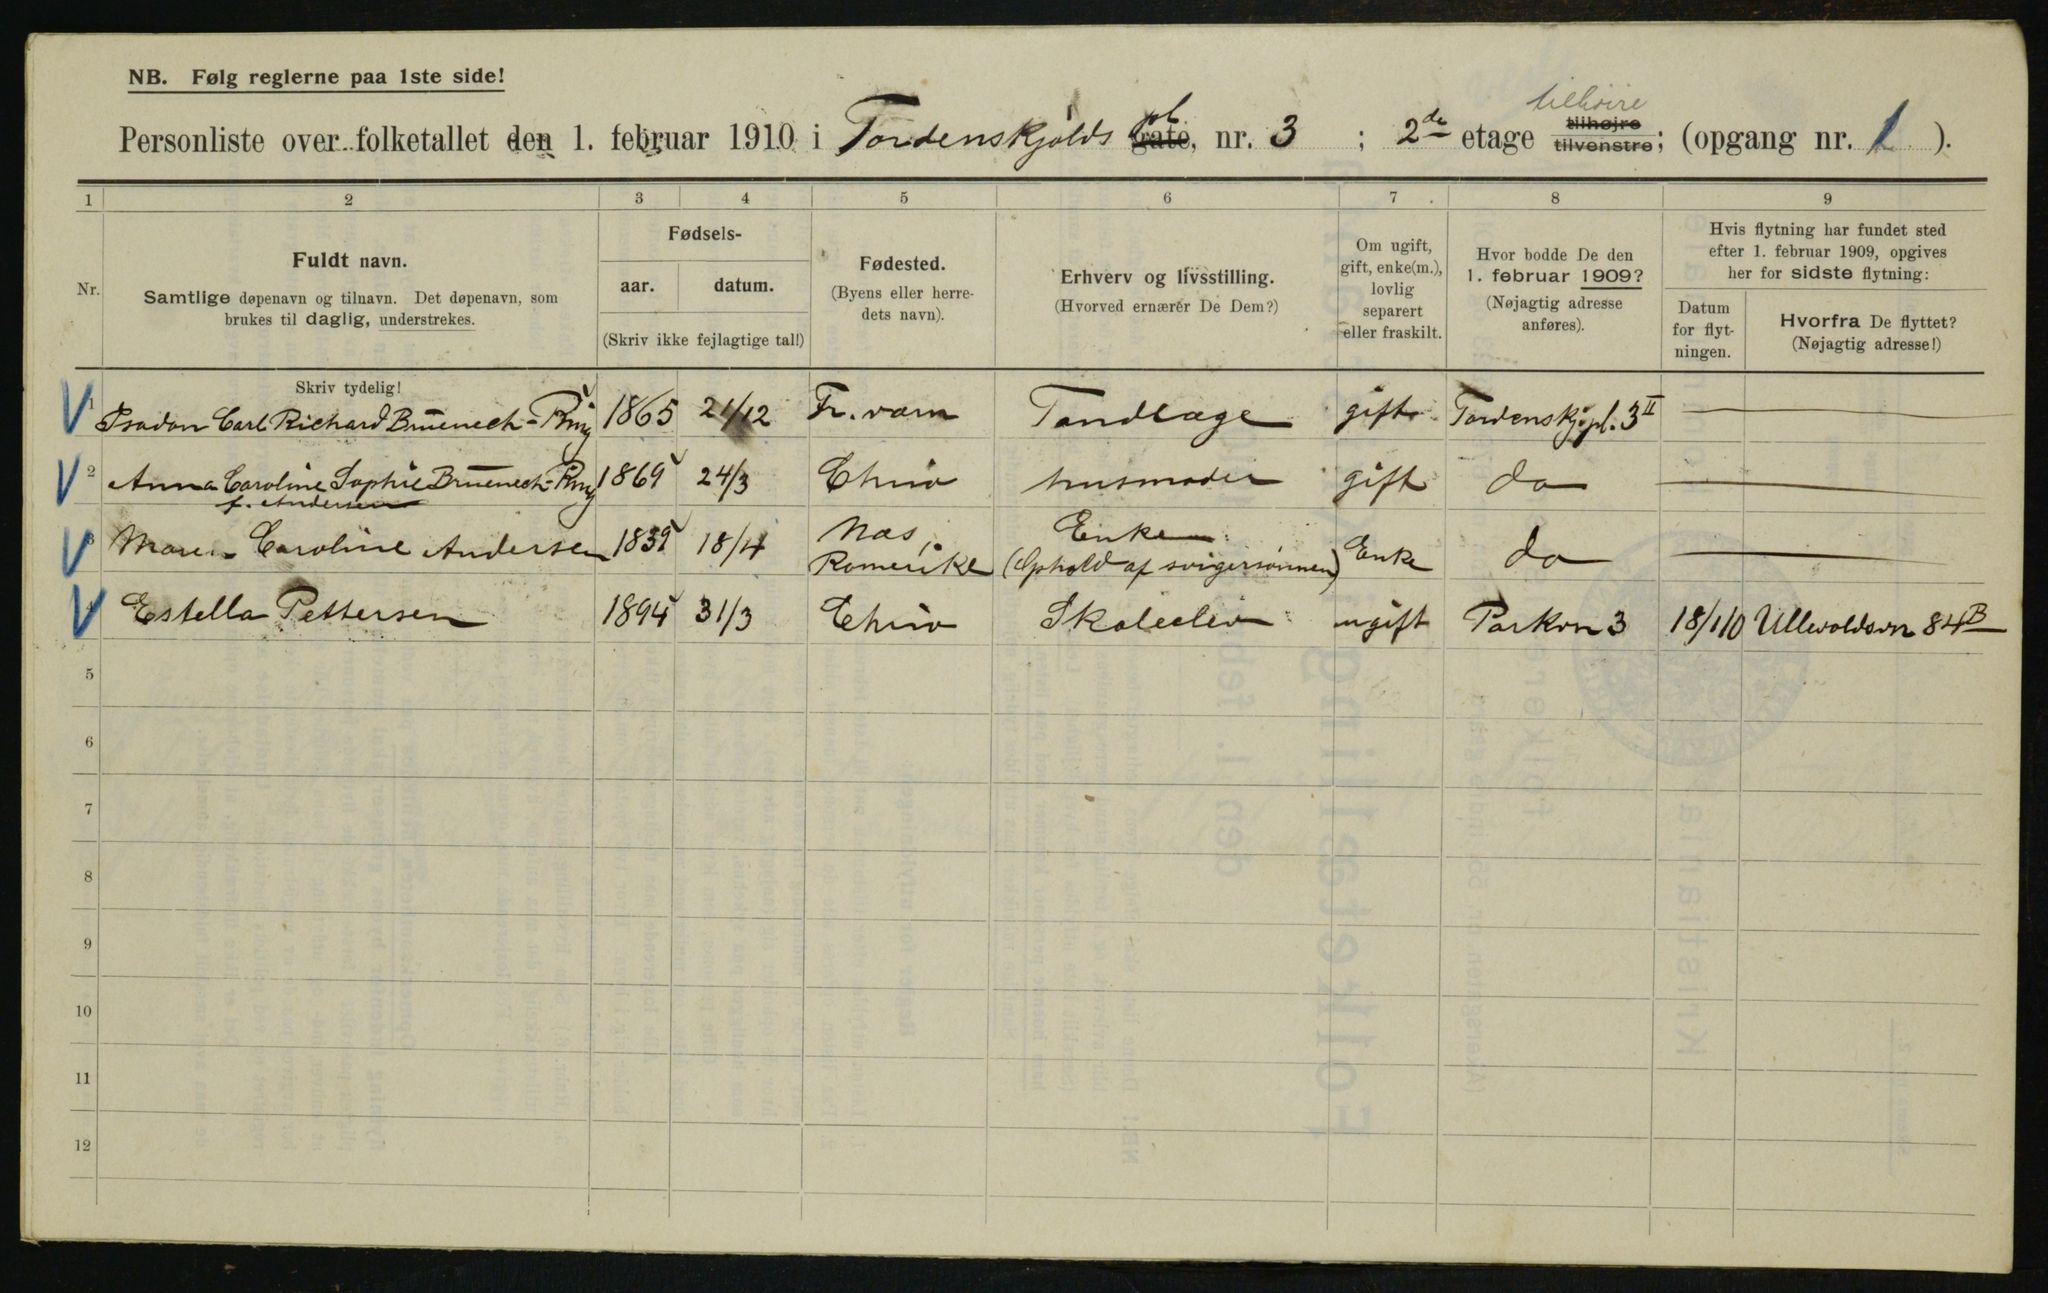 NB. Følg reglerne paa 1ste side!
tilhøire
Personliste over folketallet den 1. februar 1910 i Tordenskjolds gate, pl. nr. 3 ; 2de etage tilhøjre tilvenstre; (opgang nr. 1 ).
1 2 3 4 5 6 7 8 9
Nr.
Fuldt navn.
Samtlige døpenavn og tilnavn. Det døpenavn, som
brukes til daglig, understrekes.
Skriv tydelig!
Fødsels-
aar. datum.
(Skriv ikke fejlagtige tal!)
Fødested.
(Byens eller herre-
dets navn).
Erhverv og livsstilling.
(Hvorved ernærer De Dem?)
Om ugift,
gift, enke(m.),
lovlig
separert
eller fraskilt.
Hvor bodde De den
1. februar 1909?
(Nøjagtig adresse
anføres).
Hvis flytning har fundet sted
efter 1. februar 1909, opgives
her for sidste flytning:
Datum
for flyt-
ningen.
Hvorfra De flyttet?
(Nøjagtig adresse!)
1 Carl Richard Bruenech-Ring 1865 21/12 Fr.værn Tandlæge gift Tordenskj.pl. 3 II —
2 Anna Caroline Sophie Bruenech-Ring 1869 24/3 Chria husmoder gift do —
f. Andersen
3 Maren Caroline Andersen 1839 18/4 Næs, Romerike Enke (Ophold af svigersønnen) Enke do —
4 Estella Pettersen 1894 31/3 Chria Skoleelev ugift Parkvn 3 18/1 10 Ullevoldsvn 84B
5
6
7
8
9
10
11
12